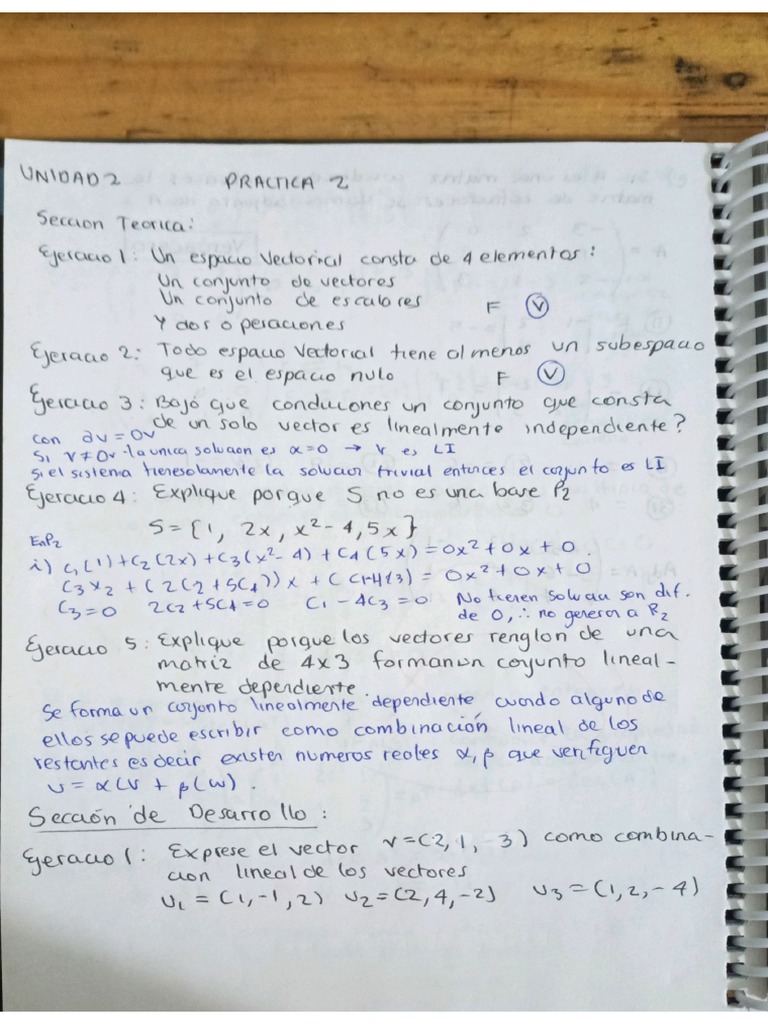 UNIDAD 2 PRACTICA 2
Seccion Teorica:
Ejercicio 1: Un espacio Vectorial consta de 4 elementos:
Un conjunto de vectores
Un conjunto de escalares F V
Y dos operaciones
Ejercicio 2: Todo espacio Vectorial tiene al menos un subespacio
que es el espacio nulo F V
Ejercicio 3: Bajo que condiciones un conjunto que consta
de un solo vector es linealmente independiente?
con ∂v = 0v
Si v ≠ 0v la unica solucion es α=0 → v es LI
Si el sistema tiene solamente la solucion trivial entonces el conjunto es LI
Ejercicio 4: Explique porque S no es una base P2
S = {1, 2x, x² - 4, 5x}
En P2
i) C1(1) + C2(2x) + C3(x² - 4) + C4(5x) = 0x² + 0x + 0
C3x2 + (2C2 + 5C4))x + (C1-4C3) = 0x² + 0x + 0
C3 = 0 2C2 + 5C4 = 0 C1 - 4C3 = 0 No tienen solucion son dif.
de 0, ∴ no generan a P2
Ejercicio 5: Explique porque los vectores renglon de una
matriz de 4x3 forman un conjunto lineal-
mente dependiente.
Se forma un conjunto linealmente dependiente cuando alguno de
ellos se puede escribir como combinación lineal de los
restantes es decir existen numeros reales α, β que verifiquen
u = α(v + β(w).
Sección de Desarrollo:
Ejercicio 1: Exprese el vector v = (2, 1, -3) como combina-
cion lineal de los vectores
U1 = (1, -1, 2) U2 = (2, 4, -2) U3 = (1, 2, -4)